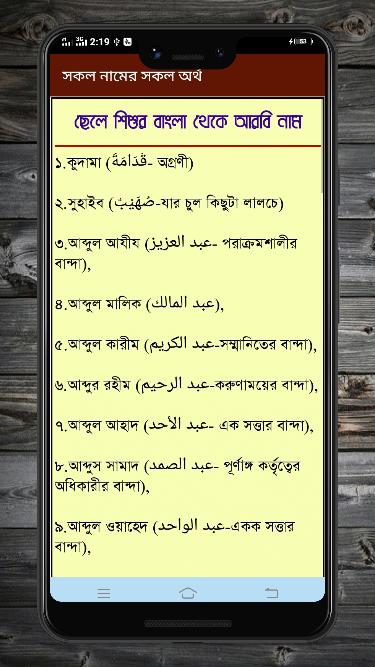 3G 2:19
সকল নামের সকল অর্থ
ছেলে শিশুর বাংলা থেকে আরবি নাম
১.কুদামা (قَدَامَةً- অগ্রণী)
২.সুহাইব (صُهَيْبٌ-যার চুল কিছুটা লালচে)
৩.আব্দুল আযীয (عبد العزيز- পরাক্রমশালীর
বান্দা),
৪.আব্দুল মালিক (عبد المالك),
৫.আব্দুল কারীম (عبد الكريم-সম্মানিতের বান্দা),
৬.আব্দুর রহীম (عبد الرحيم-করুণাময়ের বান্দা),
৭.আব্দুল আহাদ (عبد الأحد- এক সত্তার বান্দা),
৮.আব্দুস সামাদ (عبد الصمد- পূর্ণাঙ্গ কর্তৃত্বের
অধিকারীর বান্দা),
৯.আব্দুল ওয়াহেদ (عبد الواحد-একক সত্তার
বান্দা),